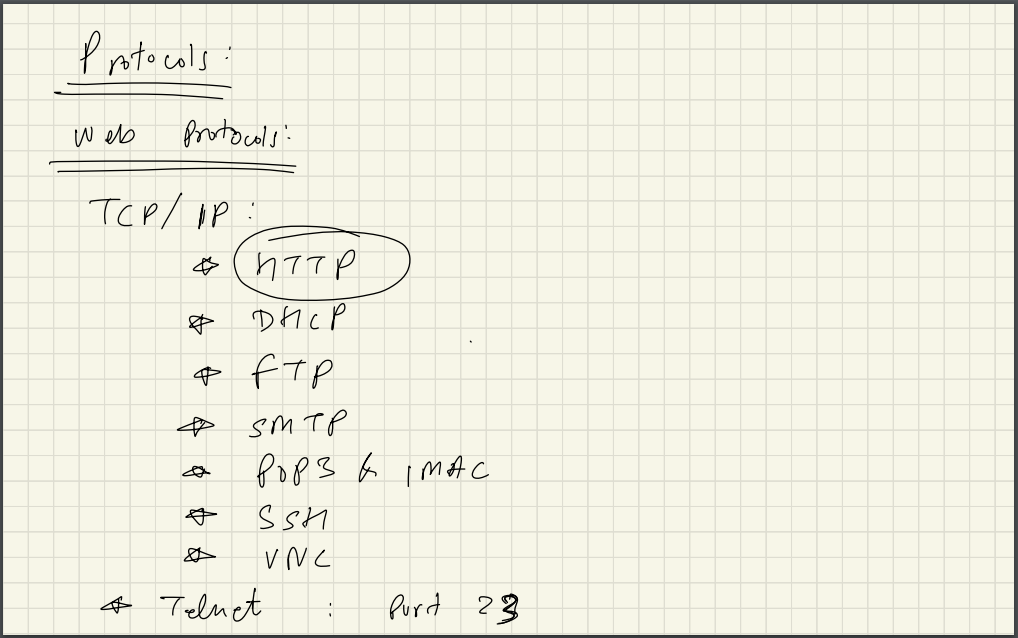 Protocols:
Web Protocols:
TCP/IP:
HTTP
DHCP
FTP
SMTP
POP3 & IMAC
SSH
VNC
Telnet : Port 23